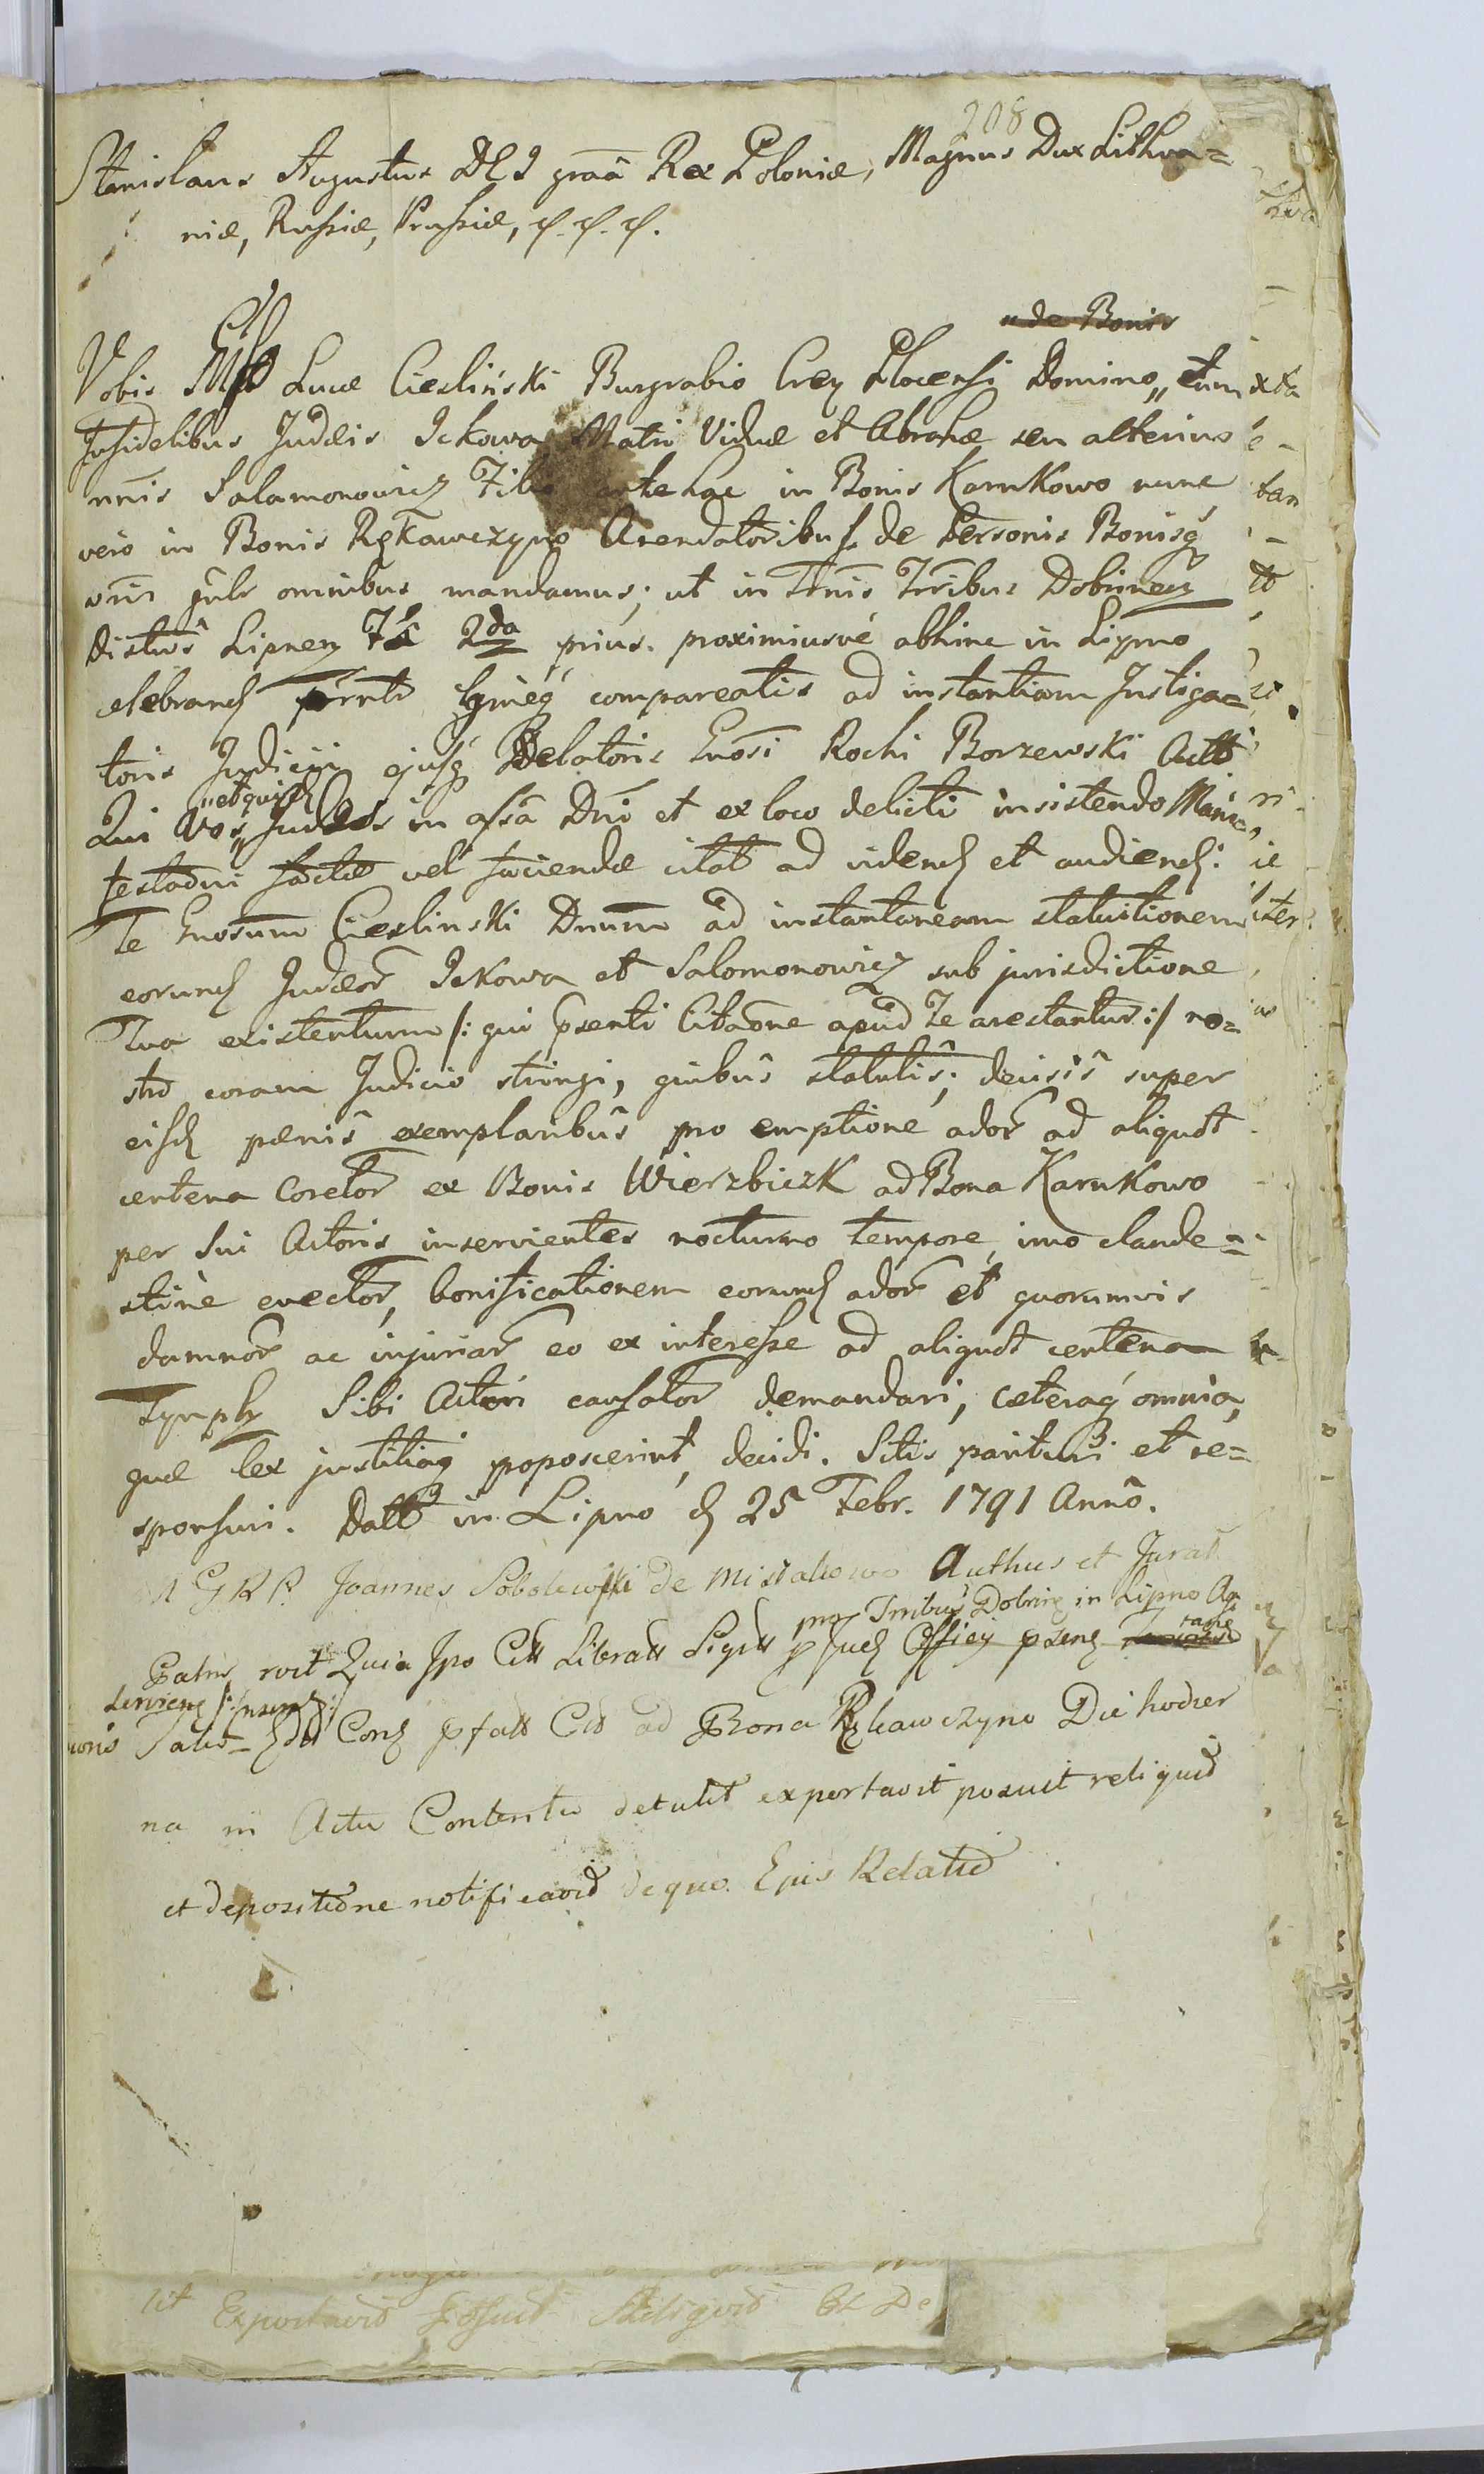 208
Stanislaus Augustus DEI graã Rex Poloniæ, Magnus Dux Lithva=
niæ, Russiæ, Prussiæ,
de Bonis
Vobis Lucæ Ciesliński Burgrabio Plocensi Domino,, tum
Infidelibus Judæis Ickowa Matri Viduæ et Abrahæ seu alterius
nñis Salamonowicz Filio antehac in Bonis Karnkowo nunc
vero in Bonis Rękawczyno Arendatoribus de Personis Bonisq
omnibus mandamus; ut in Tñis Trribus
Lipnen 2da prius. proximiusve abhinc in Lipno
celebrand compareatis ad instantiam Instiga=
toris Judicii ejusq Delatoris Gnosi Rochi Borzewski Actt
Qui Vos,, Judæos in assã Dñi et ex loco delicti insistendo Mani=
,,et quid
factæ vel faciendæ citat ad vidend et audiend:
Te Gnosum Cieslinski Dnum ad instantaneam statuitionem
eorund Judæor Ickowa et Salomonowicz sub jurisdictione
Tua existentium /: qui psenti Citaõne apud Te arestantur :/ no=
stro coram Judicio stringi, quibus statutis; decisis super
eisd pænis exemplaribus pro emptione ador ad aliquot
centena Coretor ex Bonis Wierzbiczk ad Bona Karnkowo
per Sui Actoris inservientes nocturno tempore, imo clande=
stine evector, bonificationem eorund ador et quorumvis
damnor ac injuriar eo ex interesse ad aliquot centena
Tynph Sibi Actori causator demandari, cæteraq omnia,
quæ lex justitiaq poposcerint, decidi. Sitis parituri et re=
sponsuri. Datt in Lipno d 25 Febr. 1791 Anno.
M G R P. Joannes Sobolewski de Authus et Jurat
pro Trribus Dobrinen in Lipno
Quia Ipo Citt Libratt Sigill
ad Bona Rękawczyno Die hodier
na in Actu Contentu detulit exportavit posuit reliquid
et depositione notificavid de quo Ejus Relatio
Exportavid Posuit Reliquid Et De